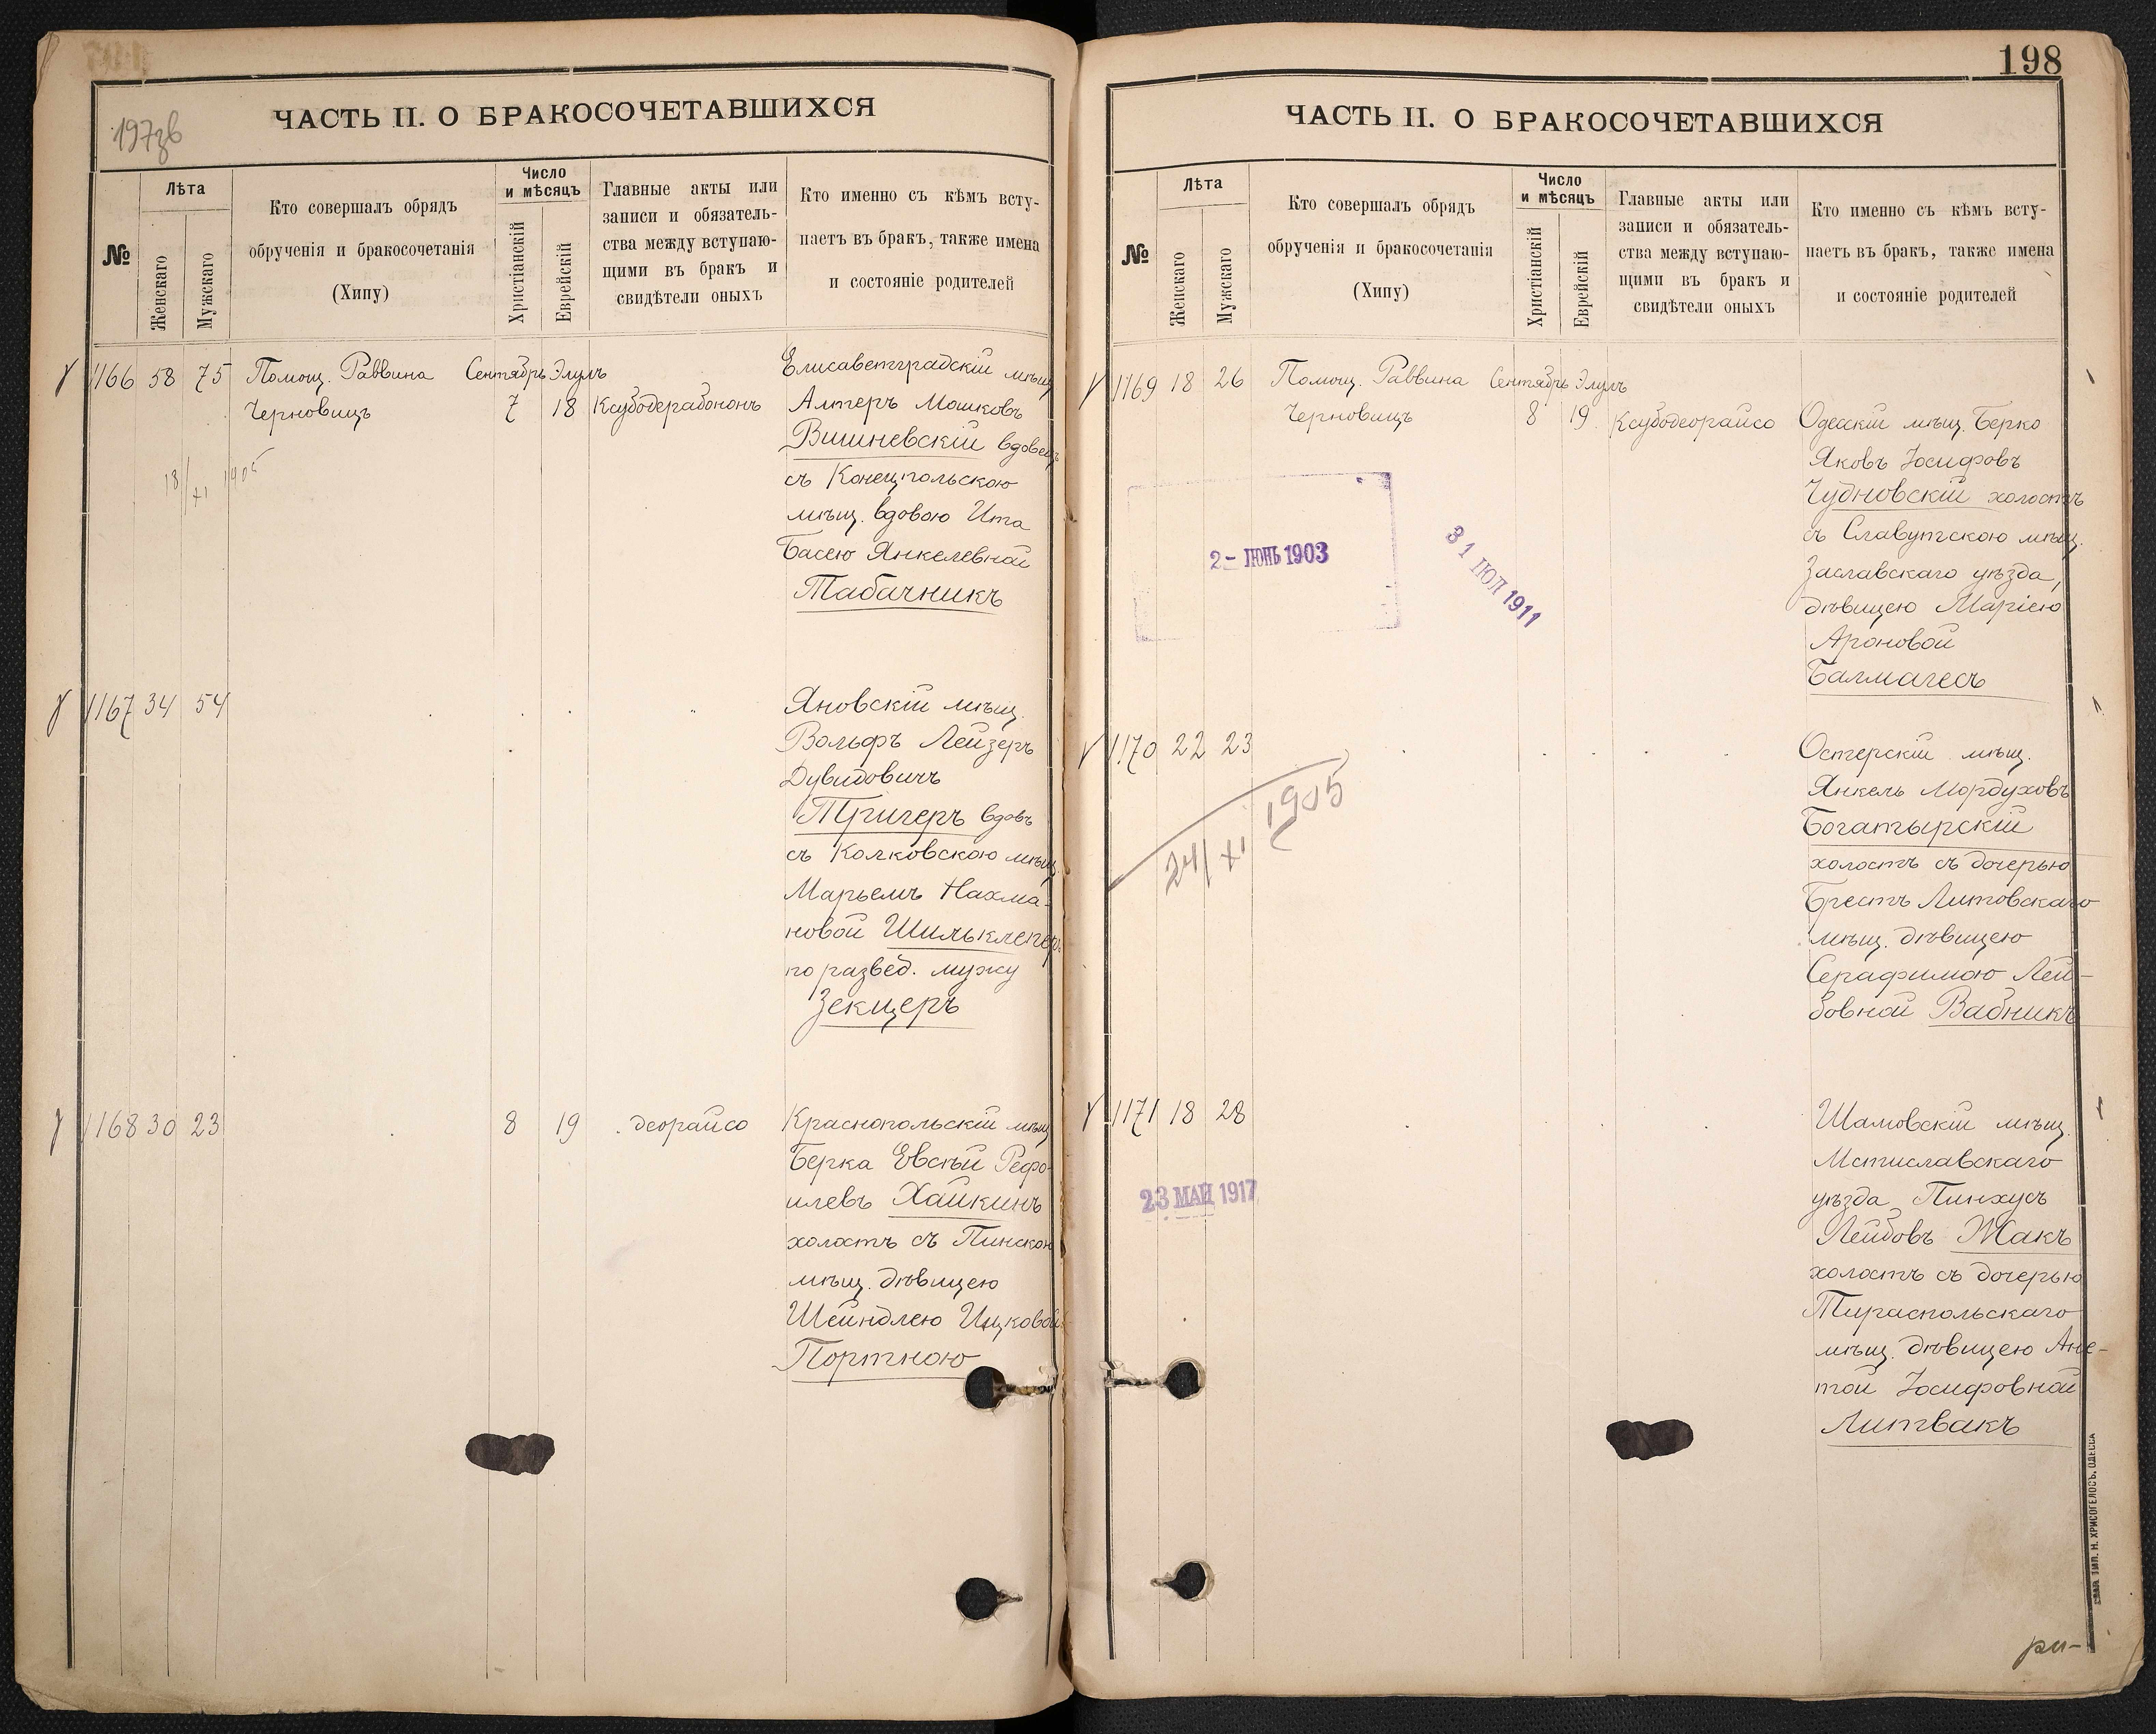 197зв
ЧАСТЬ II. О БРАКОСОЧЕТАВШИХСЯ
№
Лѣта
Женскаго
Мужскаго
Кто совершалъ обрядъ
обрученія и бракосочетанія
(Хипу)
Число
и мѣсяцъ
Христіанскій
Еврейскій
Главные акты или
записи и обязатель-
ства между вступаю-
щими въ бракъ и
свидѣтели оныхъ
Кто именно съ кѣмъ всту-
паетъ въ бракъ, также имена
и состояніе родителей
1166 58 75 Помощ. Раввина Сентябрь Элулъ
Черновицъ 7 18 Ксубодерабононъ
18/XI 1905
Елисаветградскій мѣщ
Алтеръ Мошковъ
Вишневскій вдовецъ
съ Конецпольскою
мѣщ. вдовою Ита
Басею Янкелевной
Табачникъ
1167 34 54
Яновскій мѣщ.
Вольфъ Лейзеръ
Дувидовичъ
Тригеръ вдовъ
съ Колковскою мѣщ.
Марьемъ Нахма-
новой Шильклеперъ
по развед. мужу
Зекцеръ
1168 30 23 8 19 деорайсо
Краснопольскій мѣщ
Берка Евсѣй Рефо-
илевъ Хайкинъ
холостъ съ Пинскою
мѣщ. дѣвицею
Шейндлею Ицковой
Портною
198
ЧАСТЬ II. О БРАКОСОЧЕТАВШИХСЯ
№
Лѣта
Женскаго
Мужскаго
Кто совершалъ обрядъ
обрученія и бракосочетанія
(Хипу)
Число
и мѣсяцъ
Христіанскій
Еврейскій
Главные акты или
записи и обязатель-
ства между вступаю-
щими въ бракъ и
свидѣтели оныхъ
Кто именно съ кѣмъ всту-
паетъ въ бракъ, также имена
и состояніе родителей
1169 18 26 Помощ. Раввина Сентябрь Элулъ
Черновицъ 8 19 Ксубодеорайсо
2- ІЮНЬ 1903
31 ІЮЛ 1911
Одесскій мѣщ. Берко
Яковъ Іосифовъ
Чудновскій холостъ
съ Славутскою мѣщ.
Заславскаго уѣзда,
дѣвицею Маріею
Ароновой
Балмагесъ
1170 22 23
24/XI 1905
Остерскій мѣщ.
Янкель Мордуховъ
Богатырскій
холостъ съ дочерью
Брестъ Литовскаго
мѣщ. дѣвицею
Серафимою Лей-
бовной Вабникъ
1171 18 28
23 МАЙ 1917
Шамовскій мѣщ.
Мстиславскаго
уѣзда Пинхусъ
Лейбовъ Жакъ
холостъ съ дочерью
Тираспольскаго
мѣщ. дѣвицею Ане-
той Іосифовной
Литвакъ
ТИП. Н. ХРИСОГЕЛОСЪ, ОДЕССА